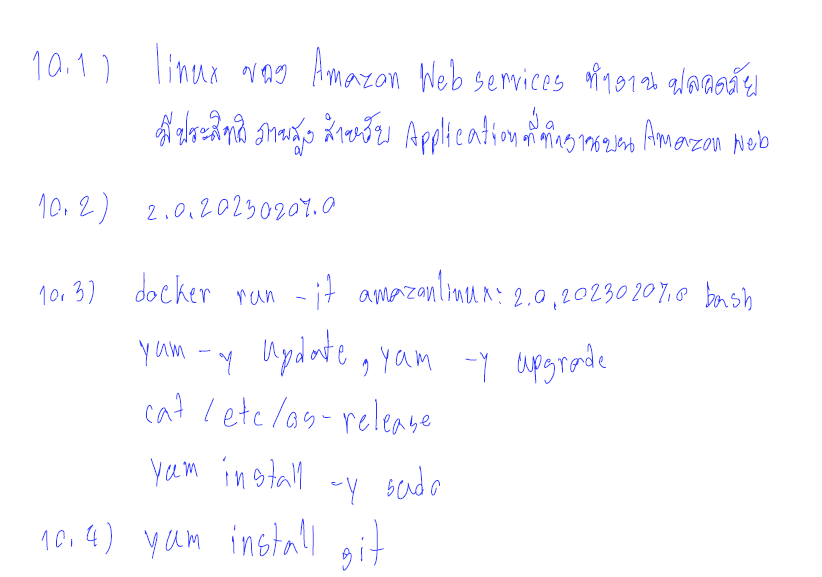 10.1) linux ของ Amazon Web services ทำงาน ปลอดภัย
มีประสิทธิภาพสูง สำหรับ Application ที่ทำงานบน Amazon Web
10.2) 2.0.20230207.0
10.3) docker run -it amazonlinux:2.0.20230207.0 bash
yum -y update, yum -y upgrade
cat /etc/os-release
yum install -y sudo
10.4) yum install git